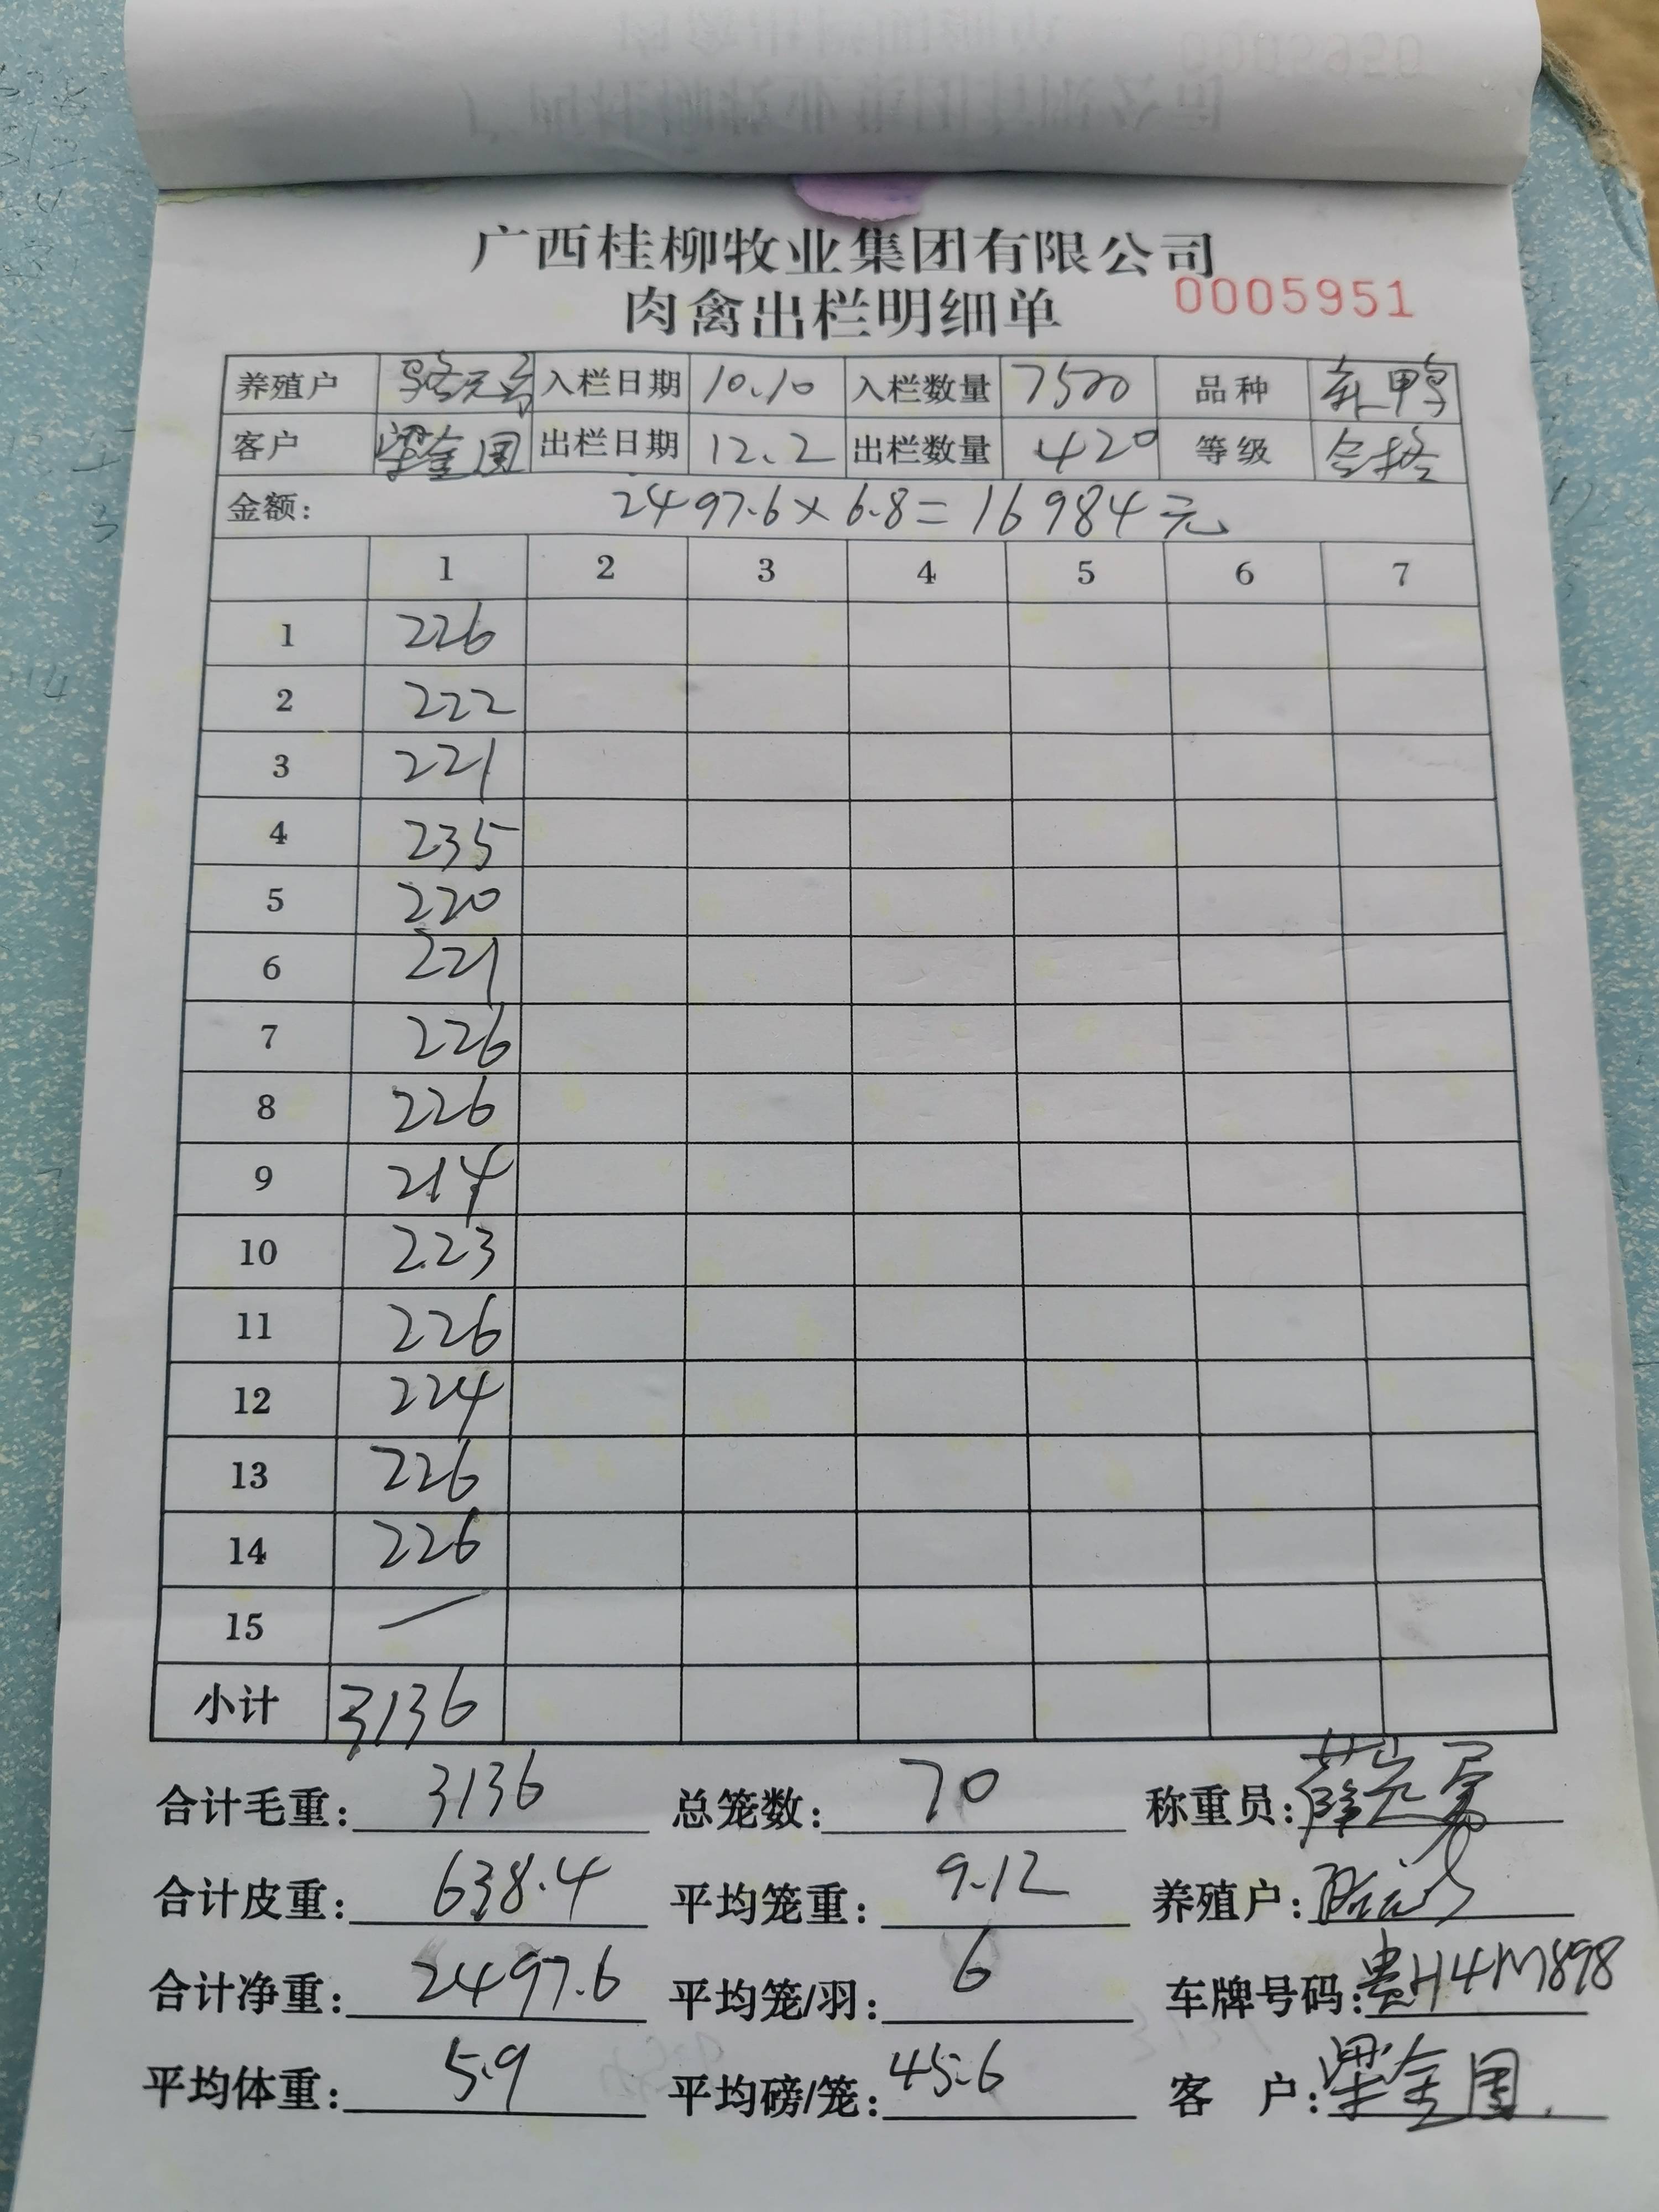 广西桂柳牧业集团有限公司
肉禽出栏明细单 0005951
养殖户 入栏日期 10.10 入栏数量 7500 品种 鸭
客户 梁金国 出栏日期 12.2 出栏数量 420 等级 合格
金额: 2497.6×6.8=16984元
1 2 3 4 5 6 7
1 226
2 222
3 221
4 235
5 220
6 221
7 226
8 226
9 214
10 223
11 226
12 224
13 226
14 226
15 —
小计 3136
合计毛重: 3136 总笼数: 70 称重员:
合计皮重: 638.4 平均笼重: 9.12 养殖户:
合计净重: 2497.6 平均笼/羽: 6 车牌号码: 贵H4M898
平均体重: 5.9 平均磅/笼: 45.6 客户: 梁金国